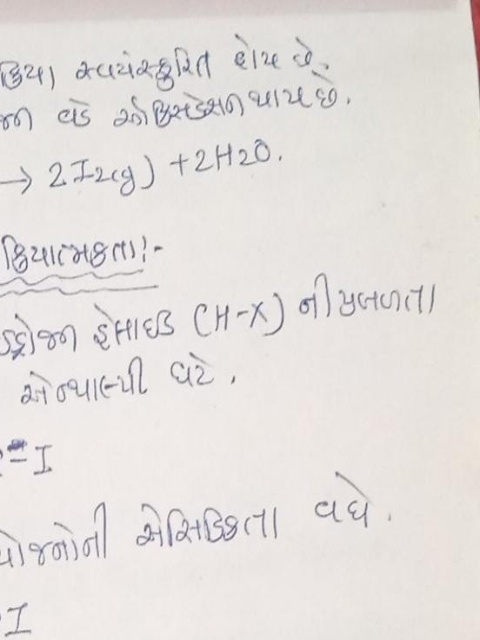 ક્રિયા સ્વયંસ્ફુરિત હોય છે.
જન વડે ઓક્સિડેશન થાય છે.
→ 2I2(g) + 2H2O.
ક્રિયાત્મકતા:-
ડ્રોજન હેલાઇડ (H-X) ની પ્રબળતા
એન્થાલ્પી ઘટે.
-I
યોજનોની એસિડિકતા વધે.
I